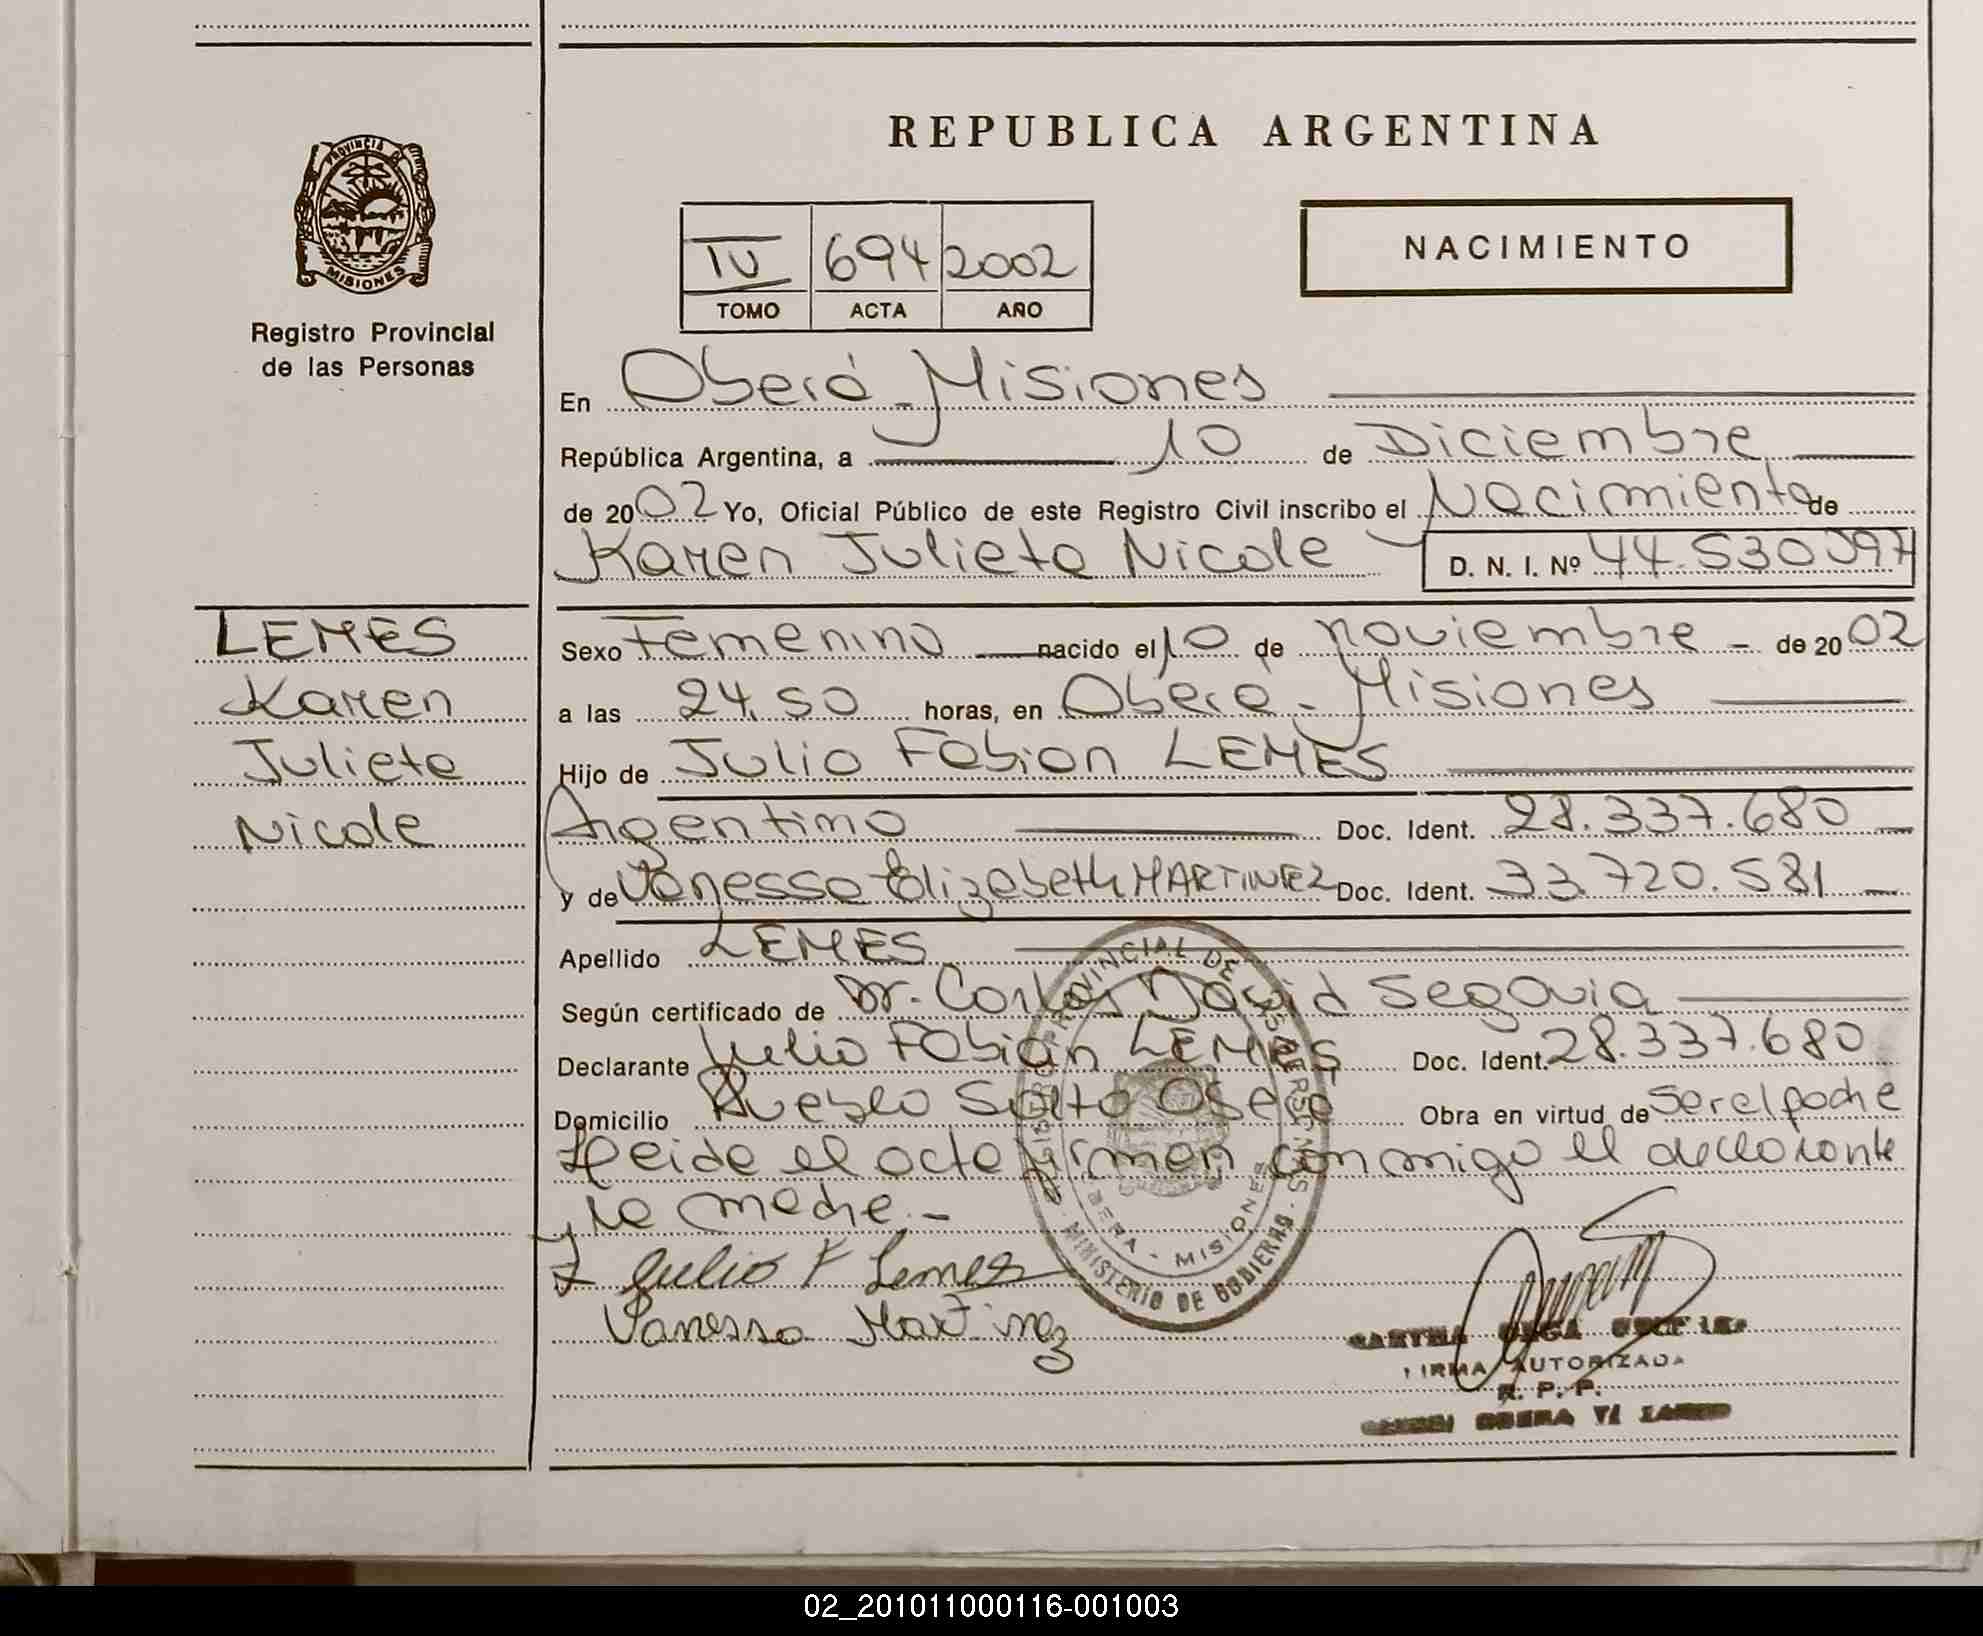 REPUBLICA ARGENTINA
PROVINCIA DE
MISIONES
Registro Provincial
de las Personas
NACIMIENTO
IV 694 2002
TOMO ACTA AÑO
En Oberá - Misiones
República Argentina, a 10 de Diciembre
de 2002 Yo, Oficial Público de este Registro Civil inscribo el Nacimiento de
Karen Julieta Nicole D. N. I. Nº 44.530.597
LEMES
Karen
Julieta
Nicole
Sexo Femenino nacido el 10 de noviembre - de 2002
a las 24.50 horas, en Oberá - Misiones
Hijo de Julio Fabian LEMES
Argentino Doc. Ident. 28.337.680
y de Vanessa Elizabeth MARTINEZ Doc. Ident. 33.720.581
Apellido LEMES
Según certificado de Dr. Carlos David Segovia
Declarante Julio Fabián LEMES Doc. Ident. 28.337.680
Domicilio Pueblo Salto Obera Obra en virtud de ser el padre
Leida el acta firman conmigo el declarante
y la madre.-
Julio F Lemes
Vanessa Martinez
MINISTERIO DE GOBIERNO
OBERA - MISIONES
FIRMA AUTORIZADA
R. P. P.
02_201011000116-001003